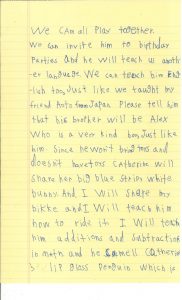 WE CAM all Play together.
We can invite him to birthday
Parties and he will teach us anoth
-er language. We can teach him Eng
lish too, Just like we taught my
friend Anto from Japan. Please tell him
that his brother will be Alex
Who is a very kind boy Just like
him Since he won't bring toys and
doesnt have toys Catherine will
share her big blue Strip white
bunny And I Will Share my
bikke and I Will teach him
how to ride it. I Will teach
him additions and subtractions
in math and he Smell Catherine
s lip glass Penguin which is